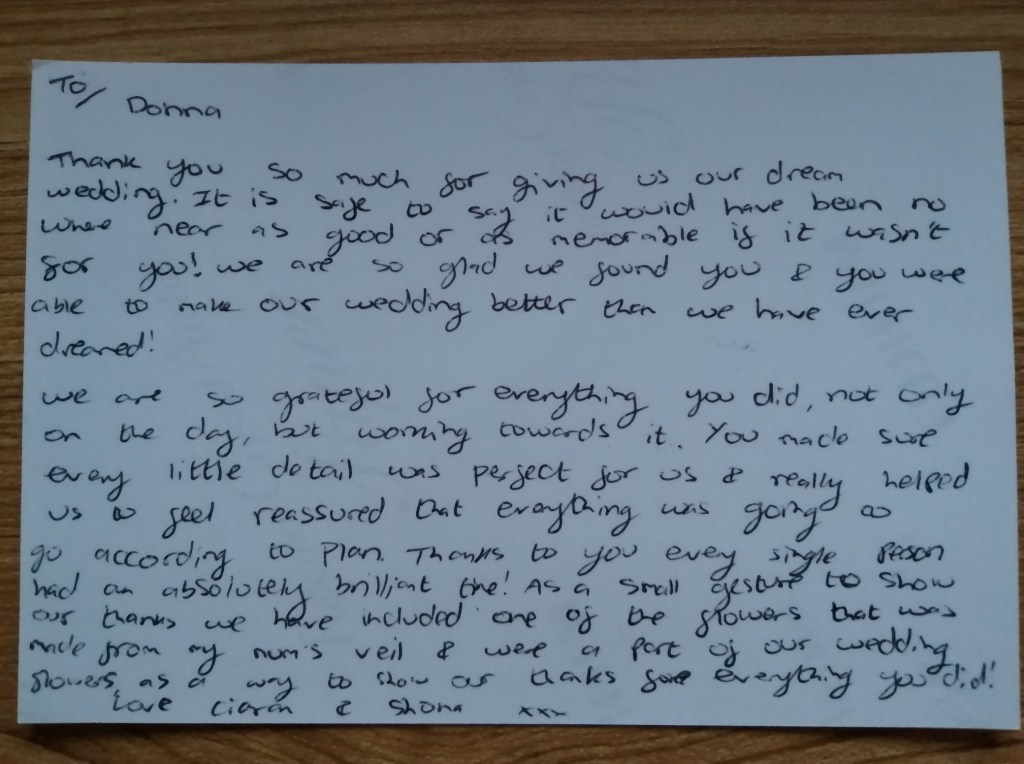 To/
Donna
Thank you so much for giving us our dream
wedding. It is safe to say it would have been no
where near as good or as memorable if it wasn't
for you! we are so glad we found you & you were
able to make our wedding better then we have ever
dreamed!
we are so grateful for everything you did, not only
on the day, but working towards it. You made sure
every little detail was perfect for us & really helped
us to feel reassured that everything was going to
go according to plan. Thanks to you every single person
had an absolutely brilliant time! As a small gesture to show
our thanks we have included one of the flowers that was
made from my mum's veil & were a part of our wedding
flowers as a way to show our thanks for everything you did!
Love Ciaran & Shona xxx